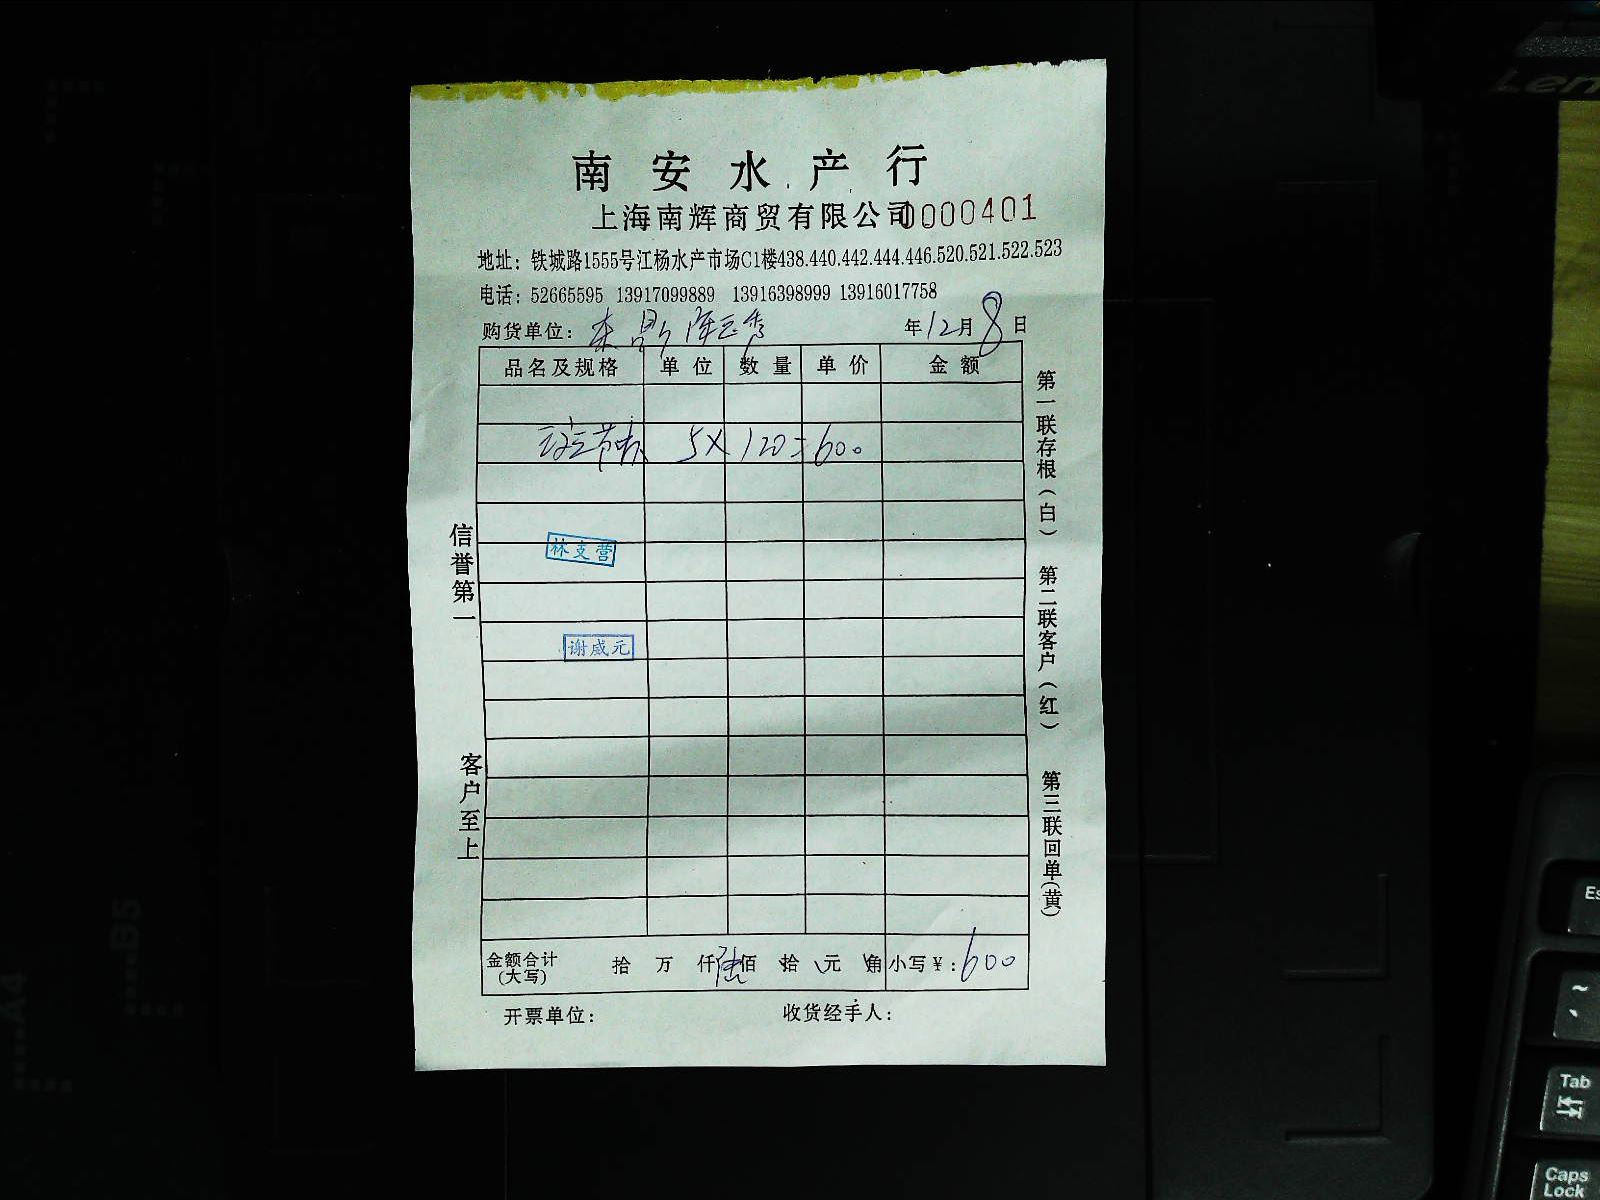 南安水产行
上海南辉商贸有限公司 0000401
地址：铁城路1555号江杨水产市场C1楼438.440.442.444.446.520.521.522.523
电话：52665595 13917099889 13916398999 13916017758
购货单位： 年12月8日
品名及规格 单位 数量 单价 金额
5×120=600
林支营
谢咸元
信誉第一
客户至上
第一联存根（白）
第二联客户（红）
第三联回单（黄）
金额合计（大写） 拾 万 仟 陆佰 拾 元 角 小写￥：600
开票单位： 收货经手人：
Lenovo
Esc
~
Tab
Caps Lock
A4
B5